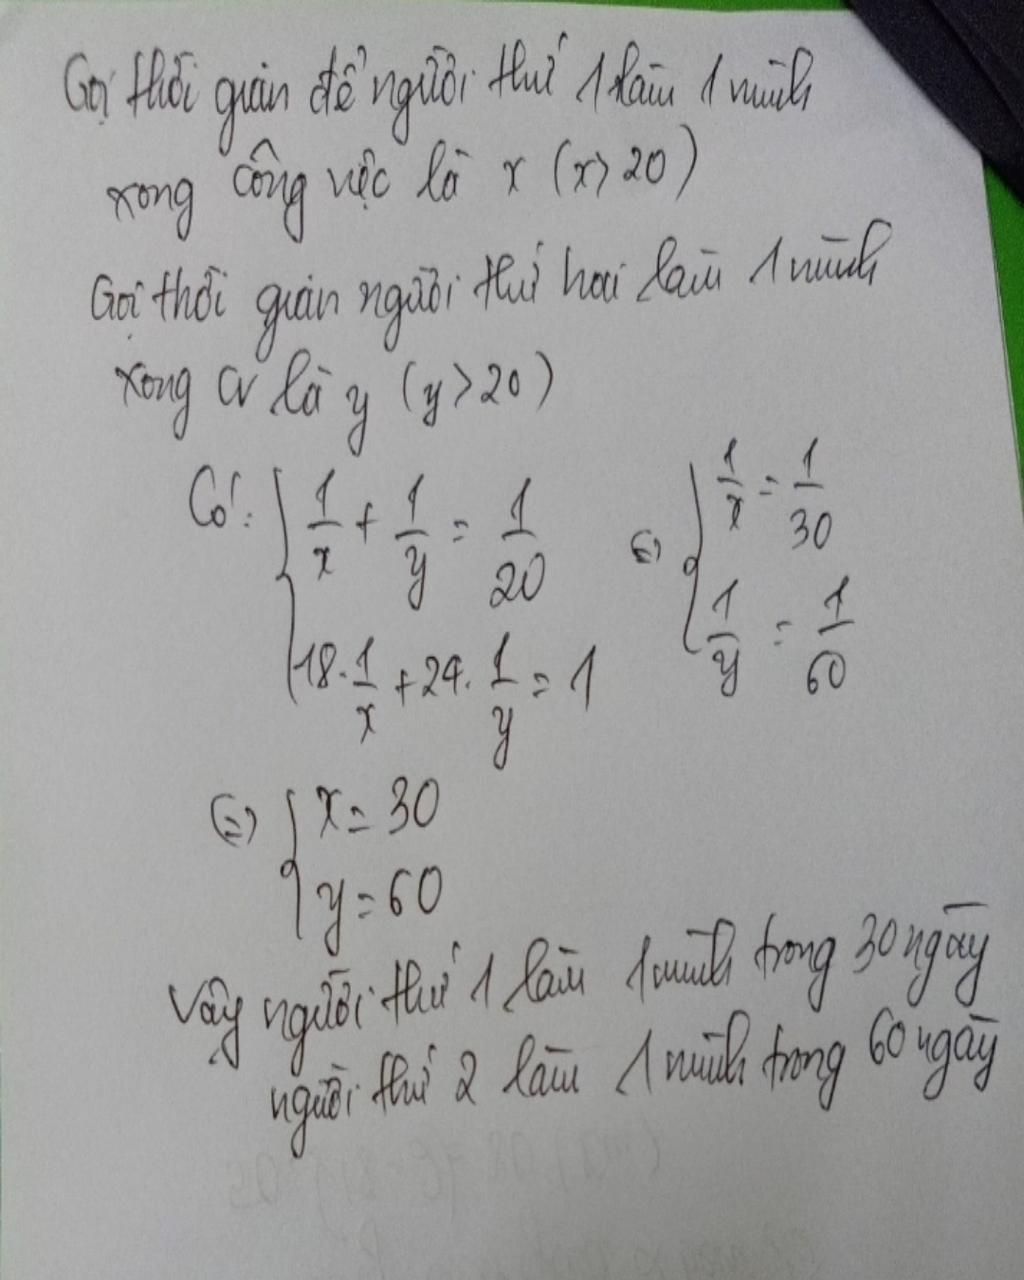 Gọi thời gian để người thứ 1 làm 1 mình
xong công việc là x (x > 20)
Gọi thời gian người thứ hai làm 1 mình
xong cv là y (y > 20)
Có: { 1/x + 1/y = 1/20
18. 1/x + 24. 1/y = 1
(=) { 1/x = 1/30
1/y = 1/60
(=) { x = 30
y = 60
Vậy người thứ 1 làm 1 mình trong 30 ngày
người thứ 2 làm 1 mình trong 60 ngày